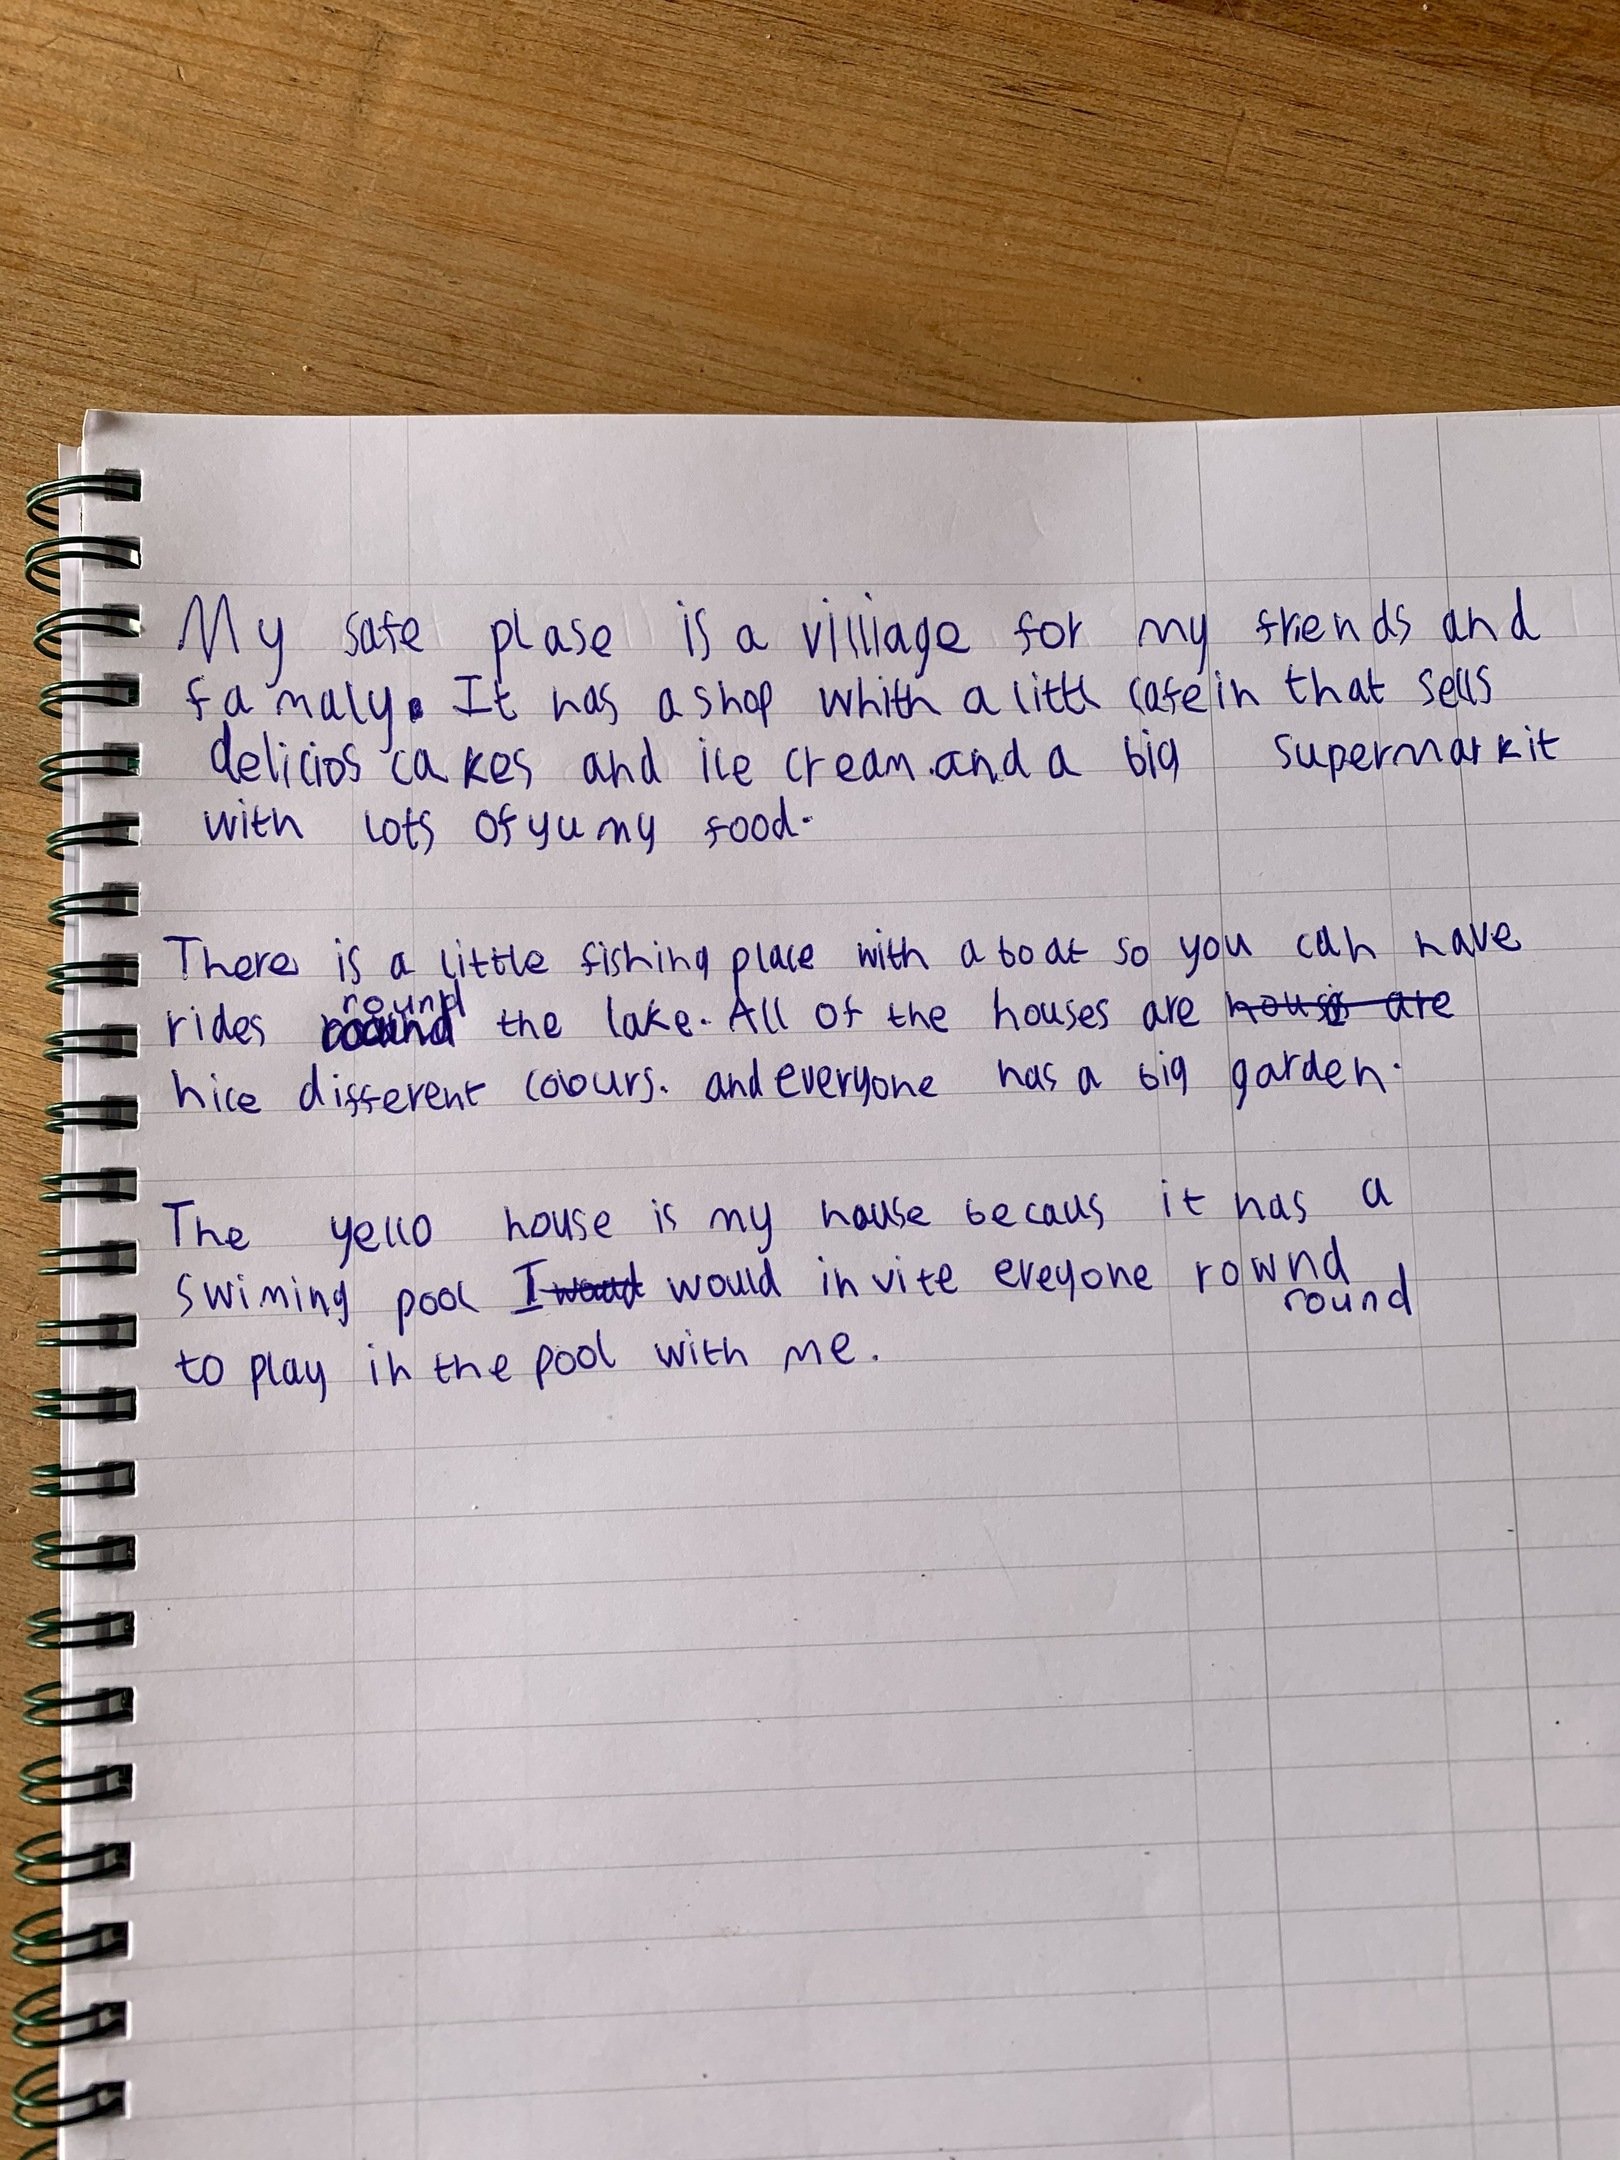 My safe plase is a villiage for my friends and
famaly. It has a shop whith a little cafe in that sells
delicios cakes and ice cream. and a big supermarkit
with lots of yumy food.
There is a little fishing place with a boat so you can have
round
rides the lake. All of the houses are hous are
nice different colours. and everyone has a big garden.
The yello house is my house becaus it has a
swiming pool I would invite ereyone rownd
round
to play in the pool with me.